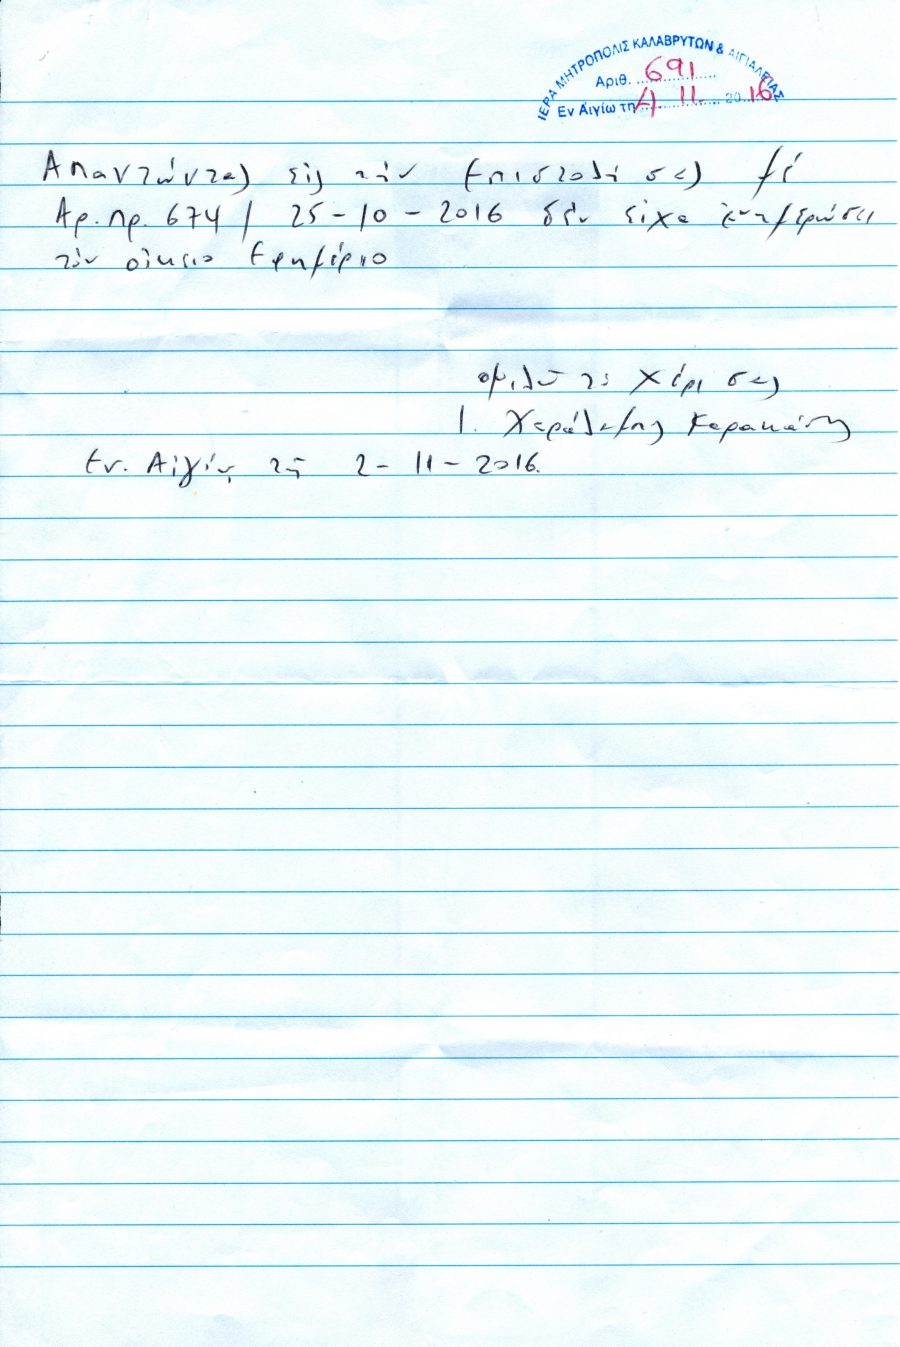 ΙΕΡΑ ΜΗΤΡΟΠΟΛΙΣ ΚΑΛΑΒΡΥΤΩΝ & ΑΙΓΙΑΛΕΙΑΣ
Αριθ. 691
Εν Αιγίω τη 4 11 2016
Απαντώντας εἰς τήν Επιστολή σας μέ
Αρ. πρ. 674 / 25-10-2016 δέν εἶχα ἐνημερώσει
τόν οἰκεῖο Εφημέριο
τό χέρι σας
Ι. Χαράλαμπης
Εν. Αἰγίῳ τῇ 2-11-2016.